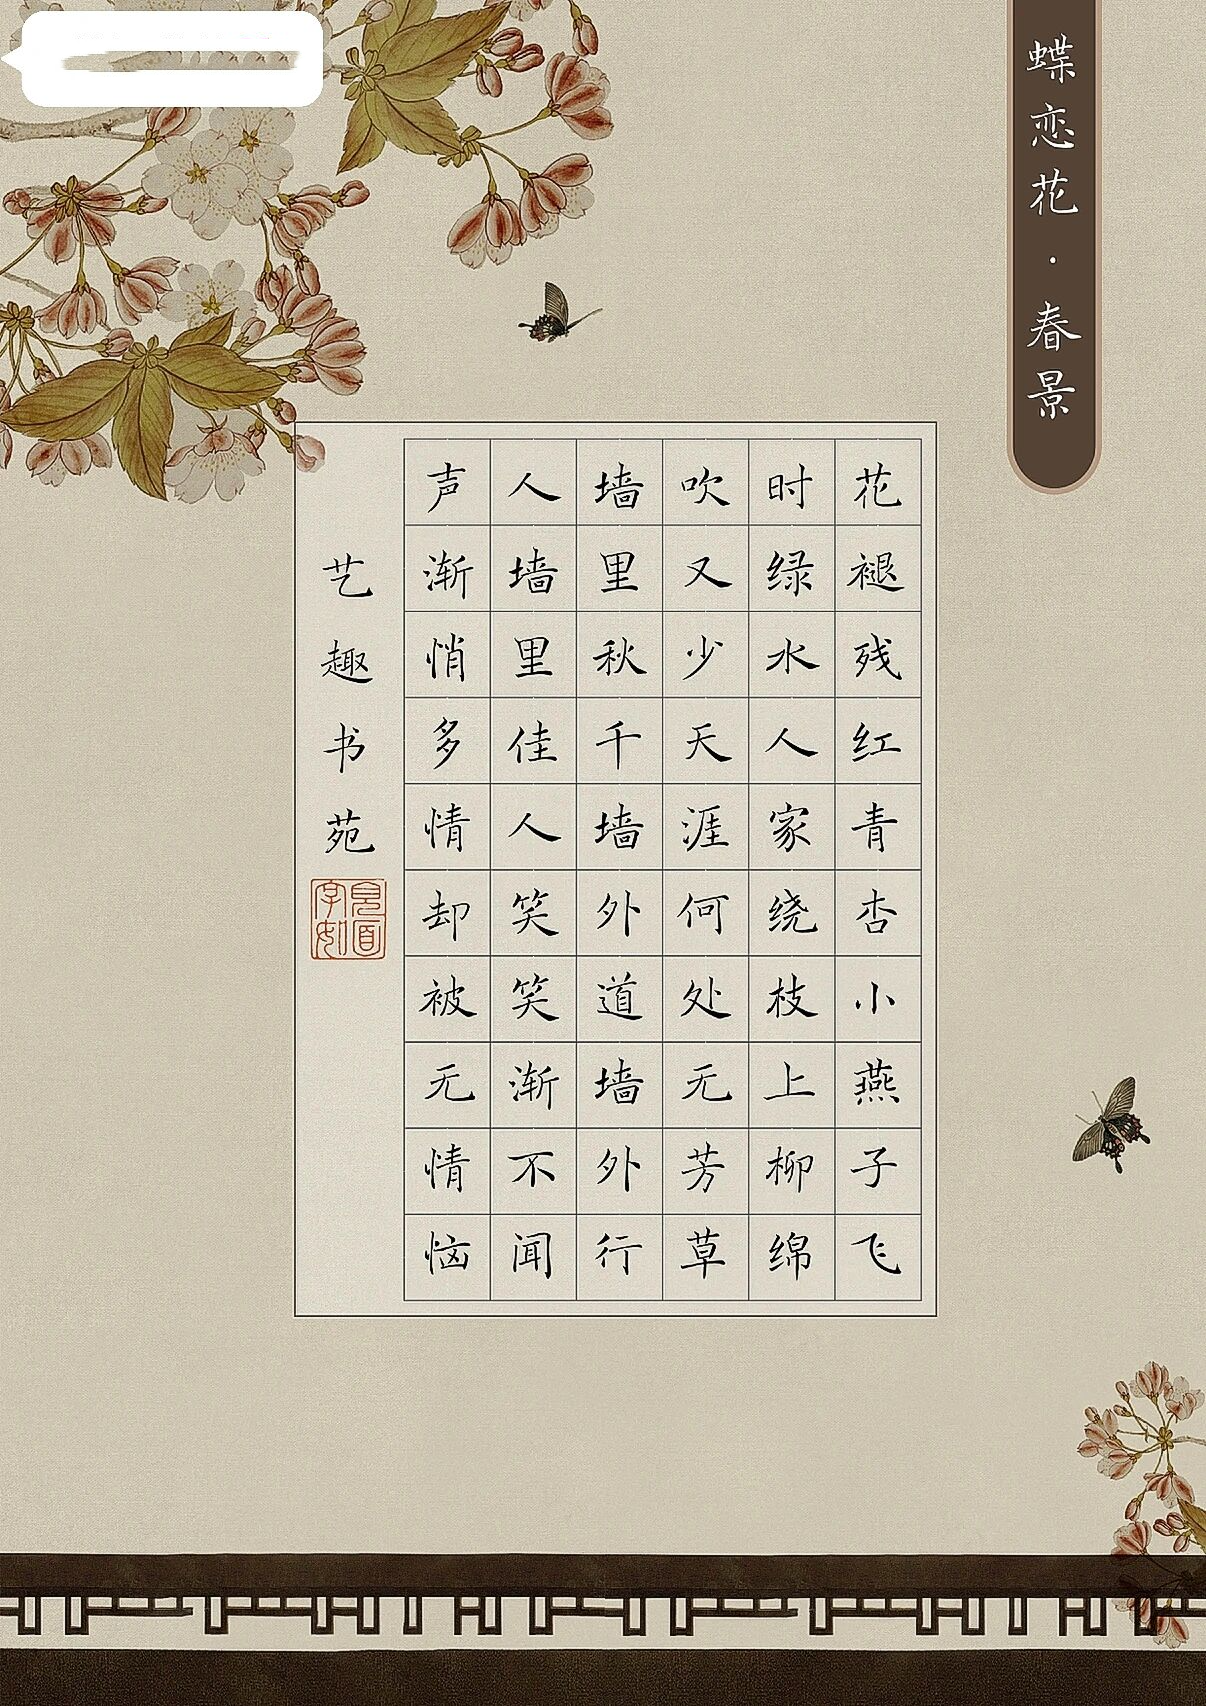 蝶恋花·春景
花褪残红青杏小燕子飞
时绿水人家绕枝上柳绵
吹又少天涯何处无芳草
墙里秋千墙外道墙外行
人墙里佳人笑笑渐不闻
声渐悄多情却被无情恼
艺趣书苑
见字如面